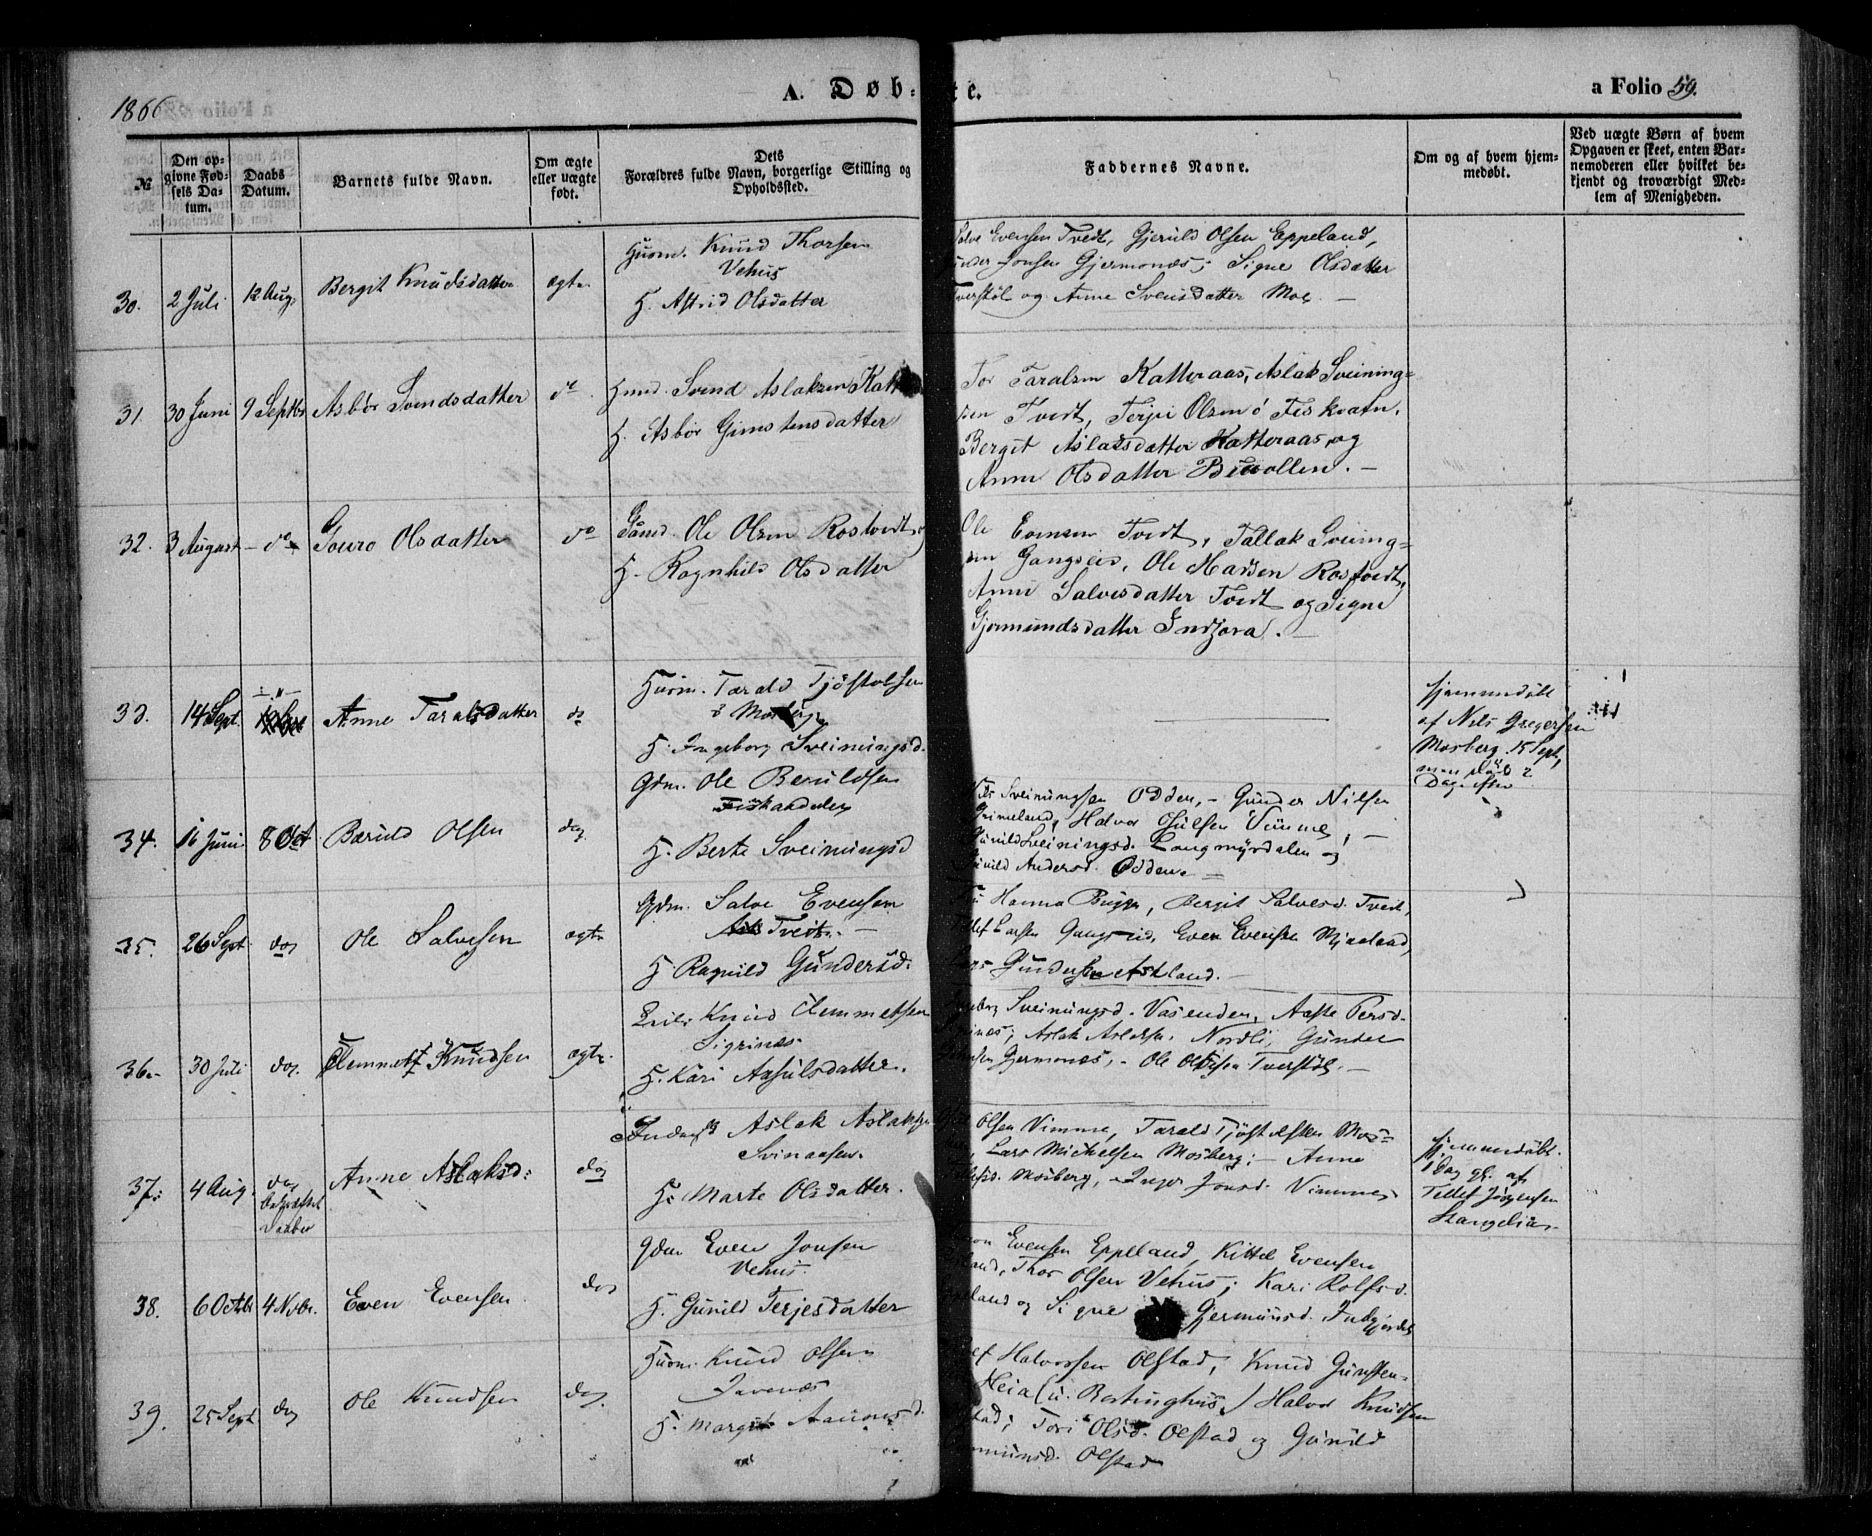 1866
A. Døb-
te.
a Folio 59.
№
Den op-
givne Fød-
sels Da-
tum.
Daabs
Datum.
Barnets fulde Navn.
Om ægte
eller uægte
født.
Dets
Forældres fulde Navn, borgerlige Stilling og
Opholdssted.
Faddernes Navne.
Om og af hvem hjem-
medøbt.
Ved uægte Børn af hvem
Opgaven er skeet, enten Bar-
nemoderen eller hvilket be-
kjendt og troværdigt Med-
lem af Menigheden.
30. 2 Juli 12 Aug. Bergit Knudsdatter ægte
Huusm. Knud Thorsen
Vehus
H. Astrid Olsdatter
Salve Evensen Tvedt, Gjeruld Olsen Eppeland,
Gunder Jonsen Gjermonæs; Signe Olsdatter
Tverstöl og Anne Svensdatter Moe. —
31. 30 Juni 9 Septbr Asbör Svendsdatter do
Svend Aslaksen
H. Asbör Gunstensdatter
Tor Taralsen Katteraas, Aslak Sveining=
sen Tvedt, Terje Olsen Fiskvatn,
Bergit Aslaksdatter Katteraas, og
Anne Olsdatter . —
32. 3 August — do — Gouro Olsdatter do
Gamd. Ole Olsen Rostvedt og
H. Ragnhild Olsdatter
Ole Evensen Tvedt, Tallak Sveining=
sen Gangseid, Ole Madsen Rostvedt,
Anne Salvesdatter Tvedt og Signe
Gjermundsdatter . —
33. 14 Sept. Anne Taralsdatter do
Huusm. Tarald Tjöstolsen
Mosberg
H. Ingeborg Sveinungsd.
hjemmedöbt
af Nils Gregersen
Mosberg 15 Sept,
men död
Dag efter
34. 16 Juni 8 Oct. Beruld Olsen do
Gdm. Ole Beruldsen
Fiskandalen
H. Berte Sveinungsd
Nils Sveinungsen Odden, — Gunder Nilsen
Grimeland, Halvor Vimme, —
Gunild Sveinungsd. Langmyrdalen og
Gunild Andersd. Odden. —
35. 26 Sept. do Ole Salvesen ægte
Gdm. Salve Evensen
Tvedt. —
H. Ragnild Gundersd.
Fru Hanna Bugge, Bergit Salvesd. Tvedt,
Tellef Larsen Gangseid, Even Evensen Mjaaland,
Lars Gundersen Askland. —
36. 30 Juli do. Clemmet Knudsen ægte.
Knud Clemmetsen
Sigrinæs
H. Kari Aasulsdatter.
Ingeborg Sveinungsd. Vasenden, Aaste Persd.
Sigrinæs; Aslak Aslaksen Nordli, Gunder
Jonsen Gjermonæs, — Ole Olsen Tverstöl. —
37. 4 Aug. do
Anne Aslaksd:
do
Aslak Aslaksen
Svinaasen.
H. Marte Olsdatter.
Olsen Vimme, Tarald Tjöstolsen Mos=
berg, Lars Michelsen Mosberg; — Anne
Mosberg, — Inger Jonsd. Vimme,
hjemmedöbt.
af
Tellef Jörgensen
Stangelia.
38. 6 Octbr 4 Novbr. Even Evensen do
Gdm Even Jonsen
Vehus.
H. Gunild Terjesdatter
Jon Evensen Eppeland, Kittel Evensen
Eppeland, Thor Olsen Vehus; Kari Rolfsd.
Eppeland og Signe Gjermunsd. Inbgjordet
39. 25 Sept do Ole Knudsen do.
Huusm. Knud Olsen
Javenæs
H. Margit Aanonsd.
Tellef Halvorsen Olstad, Knud Gunsten=
Heia ( ) Halvor Knudsen
Olstad; Tori Olsd. Olstad og Gunild
Gjermunsd. Olstad